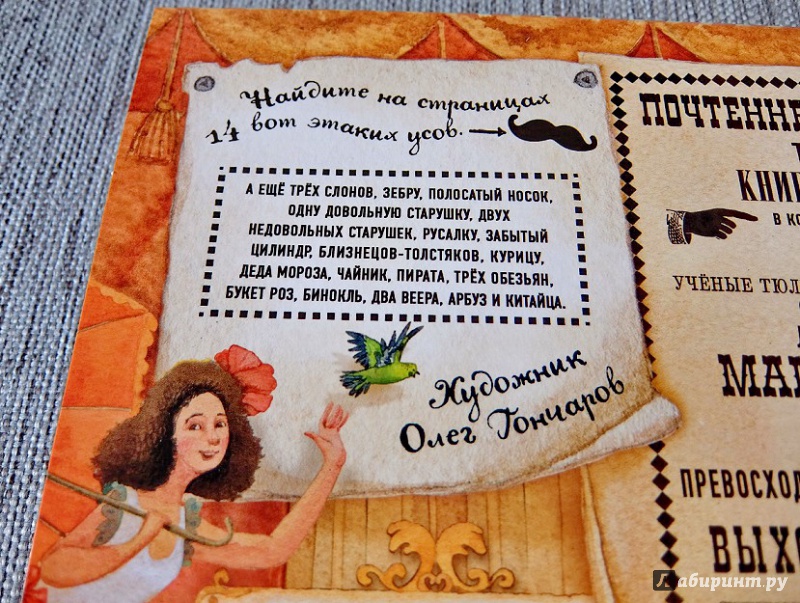 Найдите на страницах
14 вот этаких усов.
А ЕЩЁ ТРЁХ СЛОНОВ, ЗЕБРУ, ПОЛОСАТЫЙ НОСОК,
ОДНУ ДОВОЛЬНУЮ СТАРУШКУ, ДВУХ
НЕДОВОЛЬНЫХ СТАРУШЕК, РУСАЛКУ, ЗАБЫТЫЙ
ЦИЛИНДР, БЛИЗНЕЦОВ-ТОЛСТЯКОВ, КУРИЦУ,
ДЕДА МОРОЗА, ЧАЙНИК, ПИРАТА, ТРЁХ ОБЕЗЬЯН,
БУКЕТ РОЗ, БИНОКЛЬ, ДВА ВЕЕРА, АРБУЗ И КИТАЙЦА.
Художник
Олег Гончаров
ПОЧТЕНН
КНИ
В КО
УЧЁНЫЕ ТЮЛ
МА
ПРЕВОСХОД
ВЫХО
Лабиринт.ру